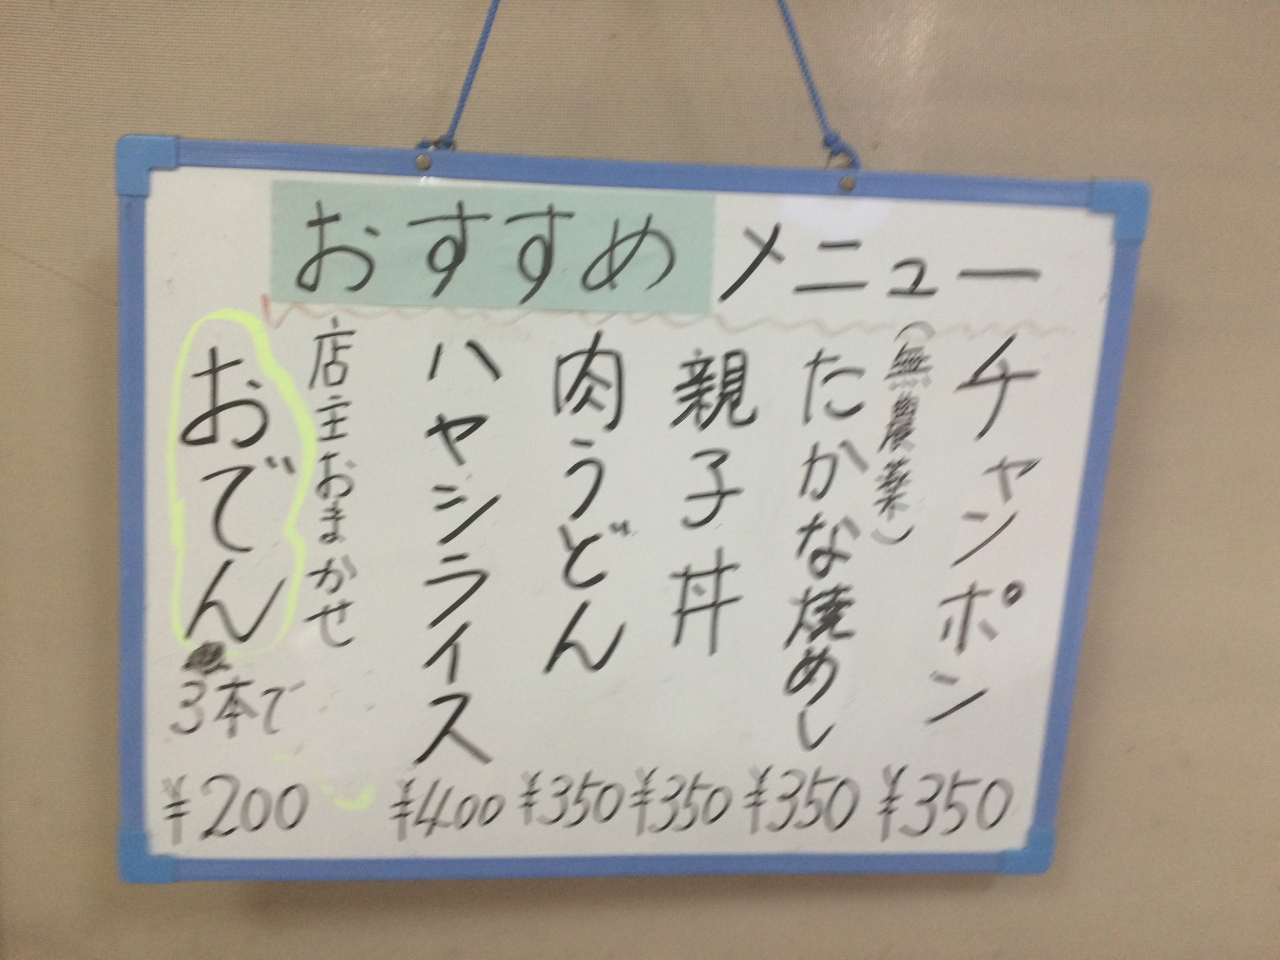 おすすめメニュー
チャンポン
¥350
(無農薬)
たかな焼めし
¥350
親子丼
¥350
肉うどん
¥350
ハヤシライス
¥400
店主おまかせ
おでん
3本で
¥200